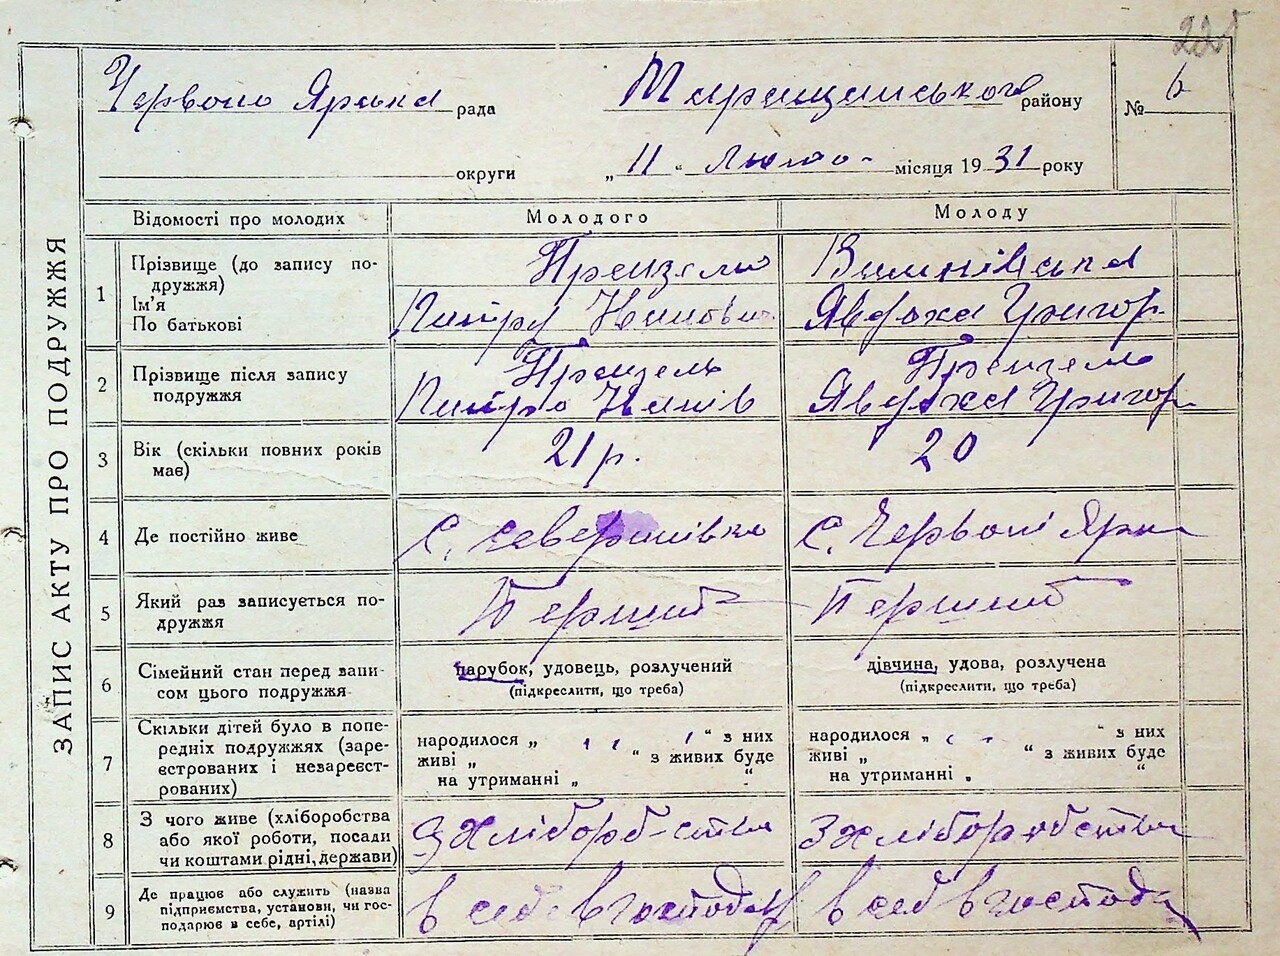 225
Червоно Ярська рада
Таращанського району
№ 6
округи
„ 11 “ Лютого місяця 1931 року
ЗАПИС АКТУ ПРО ПОДРУЖЖЯ
Відомості про молодих
Молодого
Молоду
1
Прізвище (до запису по-
дружжя)
Ім’я
По батькові
Прензель
Вишнівська
Явдоха Григор
2
Прізвище після запису
подружжя
Прензель
Петро Іванів
Прензель
Явдоха Григор
3
Вік (скільки повних років
має)
21 р.
20
4
Де постійно живе
С. Северинівка
С. Червоні Яр
5
Який раз записується по-
дружжя
Перший
Перший
6
Сімейний стан перед запи-
сом цього подружжя
парубок, удовець, розлучений
(підкреслити, що треба)
дівчина, удова, розлучена
(підкреслити, що треба)
7
Скільки дітей було в попе-
редніх подружжях (заре-
єстрованих і незареєст-
рованих)
народилося „ “ з них
живі „ “ з живих буде
на утриманні „ “
народилося „ “ з них
живі „ “ з живих буде
на утриманні „ “
8
З чого живе (хліборобства
або якої роботи, посади
чи коштами рідні, держави)
З Хлібороб-ства
З Хліборобства
9
Де працює або служить (назва
підприємства, установи, чи гос-
подарює в себе, артілі)
в себе в господ
в себ в господ